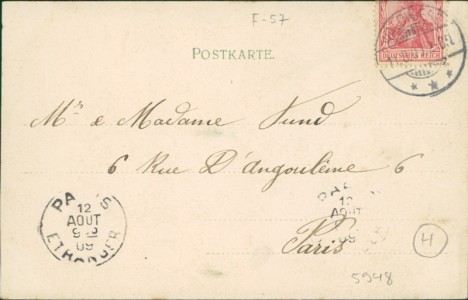 F-57
POSTKARTE.
DEUTSCHES REICH
Mr e Madame Fund
6 Rue D'Angoulême 6
Paris
PARIS
12
AOUT
09
ETRANGER
PA
12
AOUT
09
H
5948